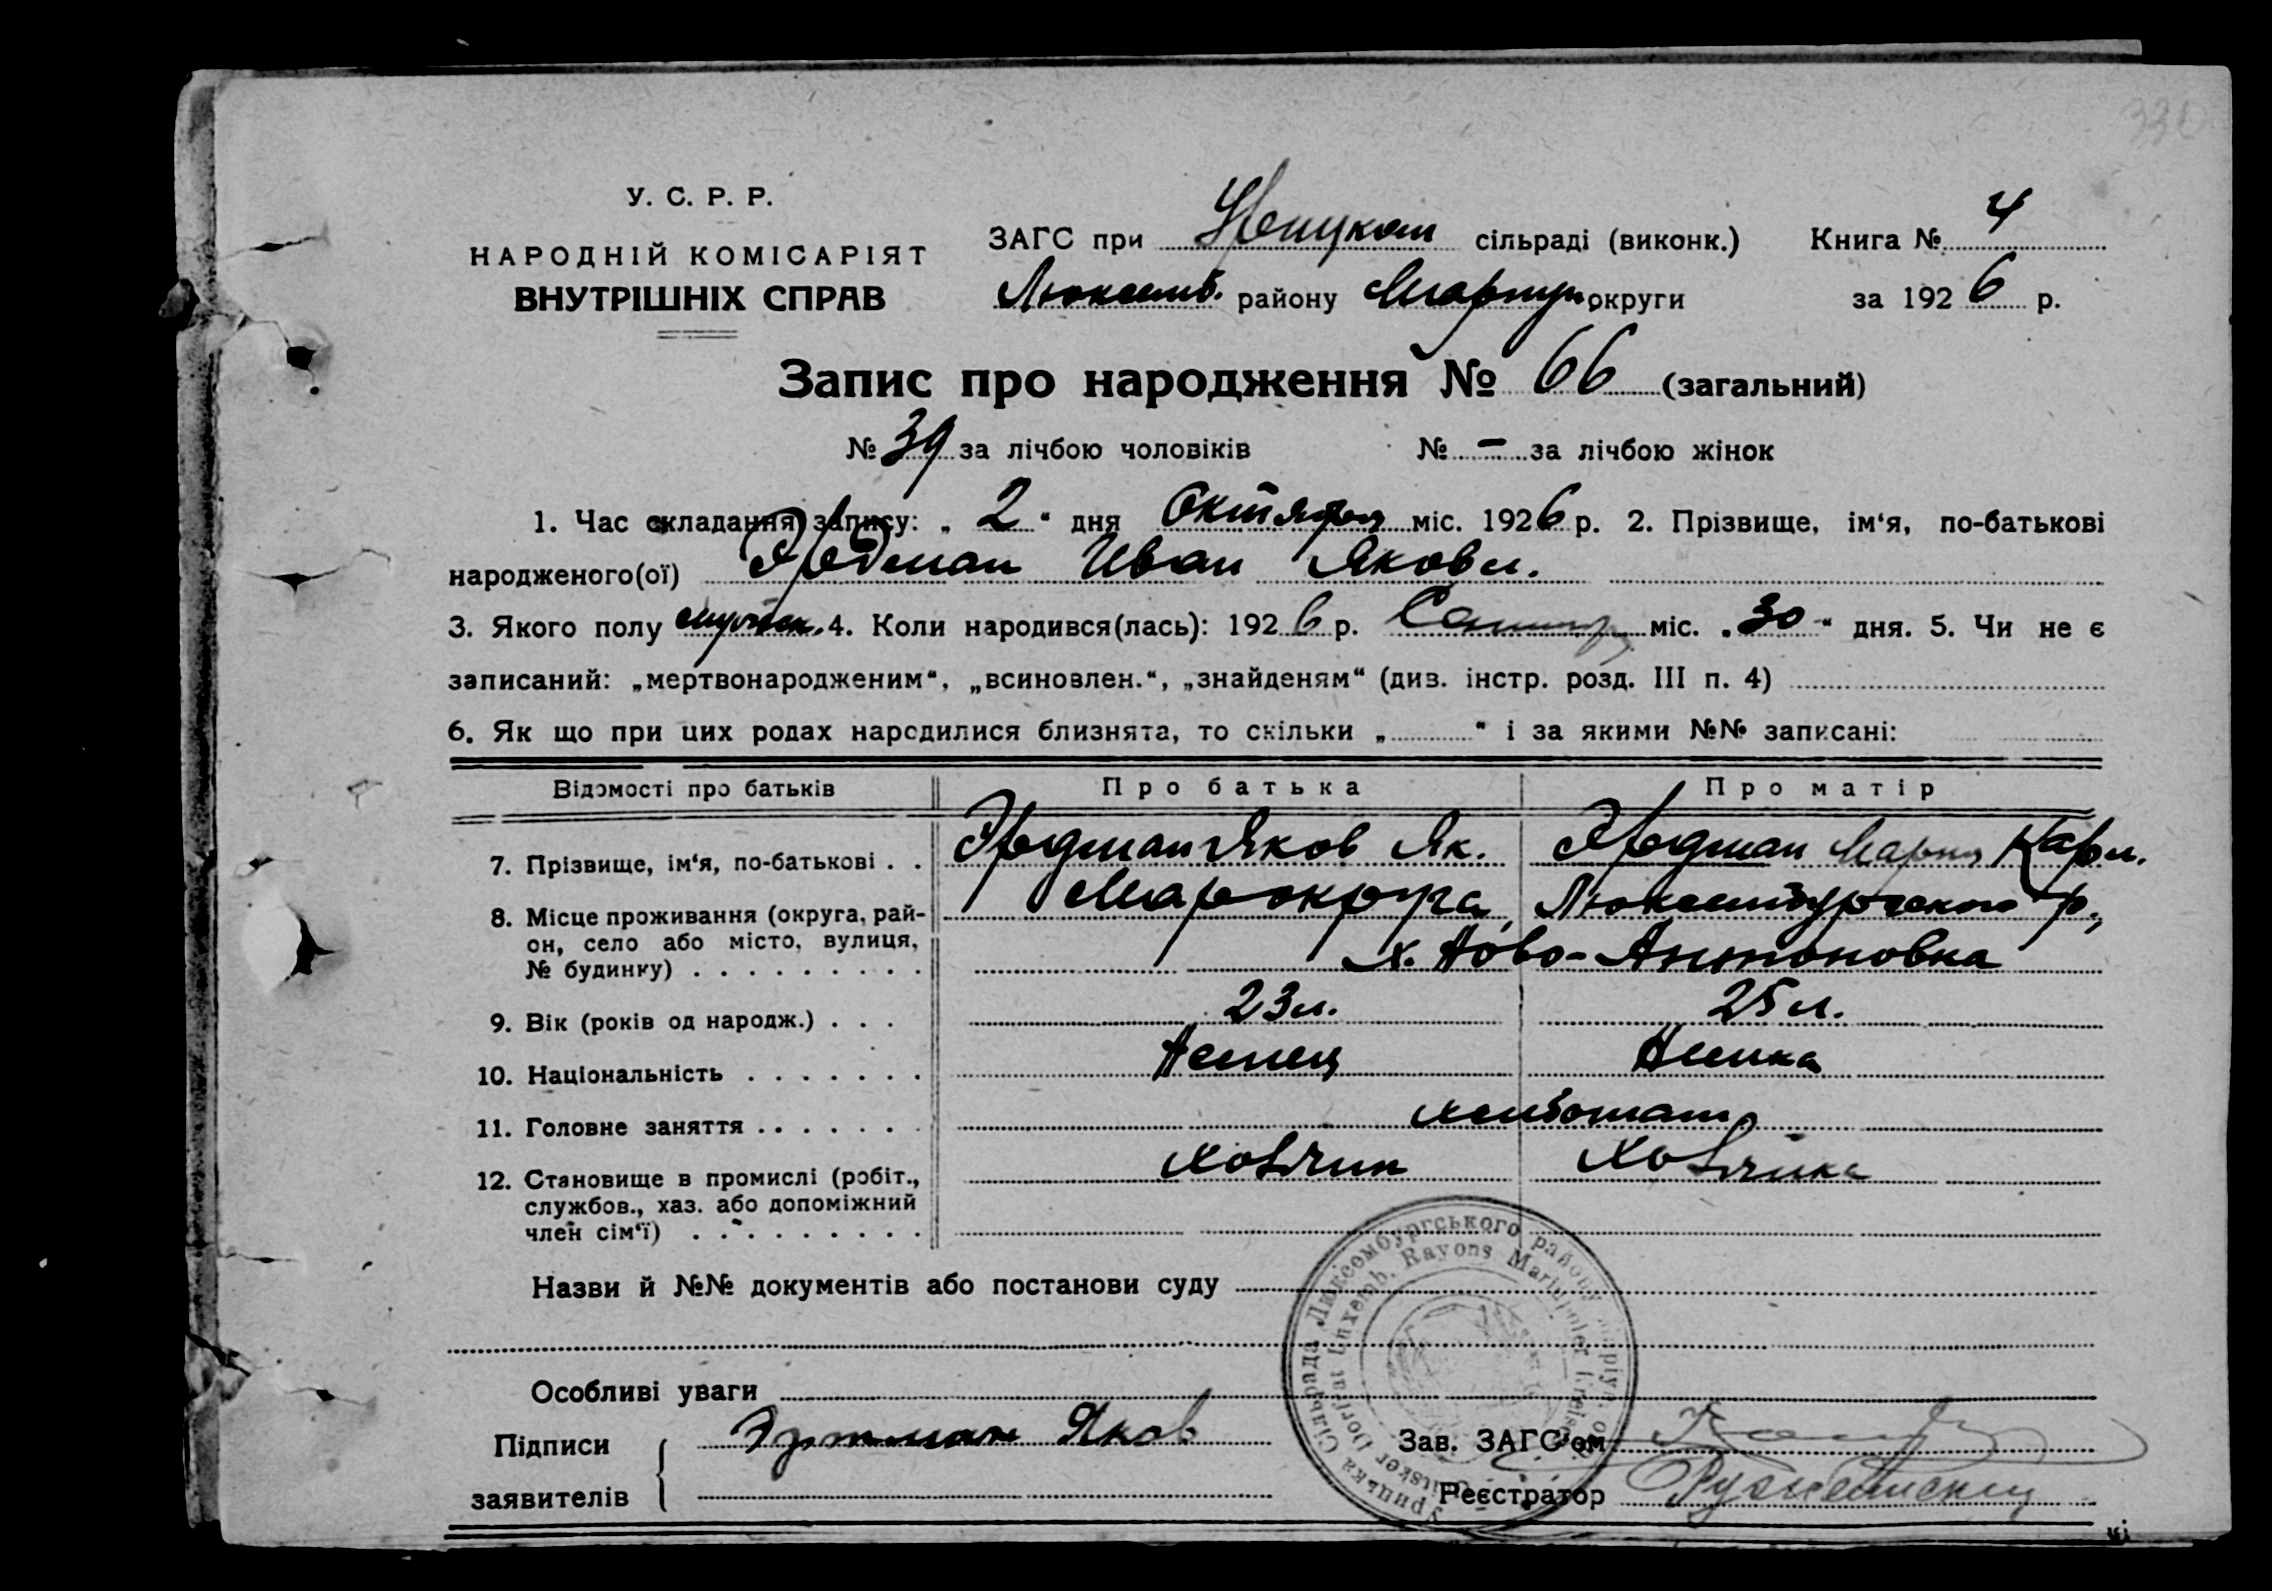 330
У. С. Р. Р.
НАРОДНІЙ КОМІСАРІЯТ
ВНУТРІШНІХ СПРАВ
ЗАГС при сільраді (виконк.) Книга № 4
Люксемб. району Мариуп. округи за 1926 р.
Запис про народження № 66 (загальний)
№ 39 за лічбою чоловіків № – за лічбою жінок
1. Час складання запису: „ 2 “ дня Октября міс. 1926 р. 2. Прізвище, ім‘я, по-батькові
народженого(ої) Иван Яковл.
3. Якого полу мужск. 4. Коли народився(лась): 1926 р. міс. „ 30 “ дня. 5. Чи не є
записаний: „мертвонародженим“, „всиновлен.“, „знайденям“ (див. інстр. розд. III п. 4)
6. Як що при цих родах народилися близнята, то скільки „ “ і за якими №№ записані:
Відомості про батьків Про батька Про матір
7. Прізвище, ім‘я, по-батькові . . Яков Як. Мария Карл.
8. Місце проживання (округа, рай- Марокруга, Люксембургского р.,
он, село або місто, вулиця, х. Ново-Антоновка
№ будинку) . . . . . . . . .
9. Вік (років од народж.) . . . 23 л. 25 л.
10. Національність . . . . . . . Немец Немка
11. Головне заняття . . . . . . . хлебопаш
12. Становище в промислі (робіт.,
службов., хаз. або допоміжний
член сім‘ї) . . . . . . . . .
Назви й №№ документів або постанови суду
Особливі уваги
Підписи заявителів Эртман Яков
Зав. ЗАГС‘ом
Реєстратор
Сільрада Люксембургського району
Luxemb. Rayons Mariupoler Kreises